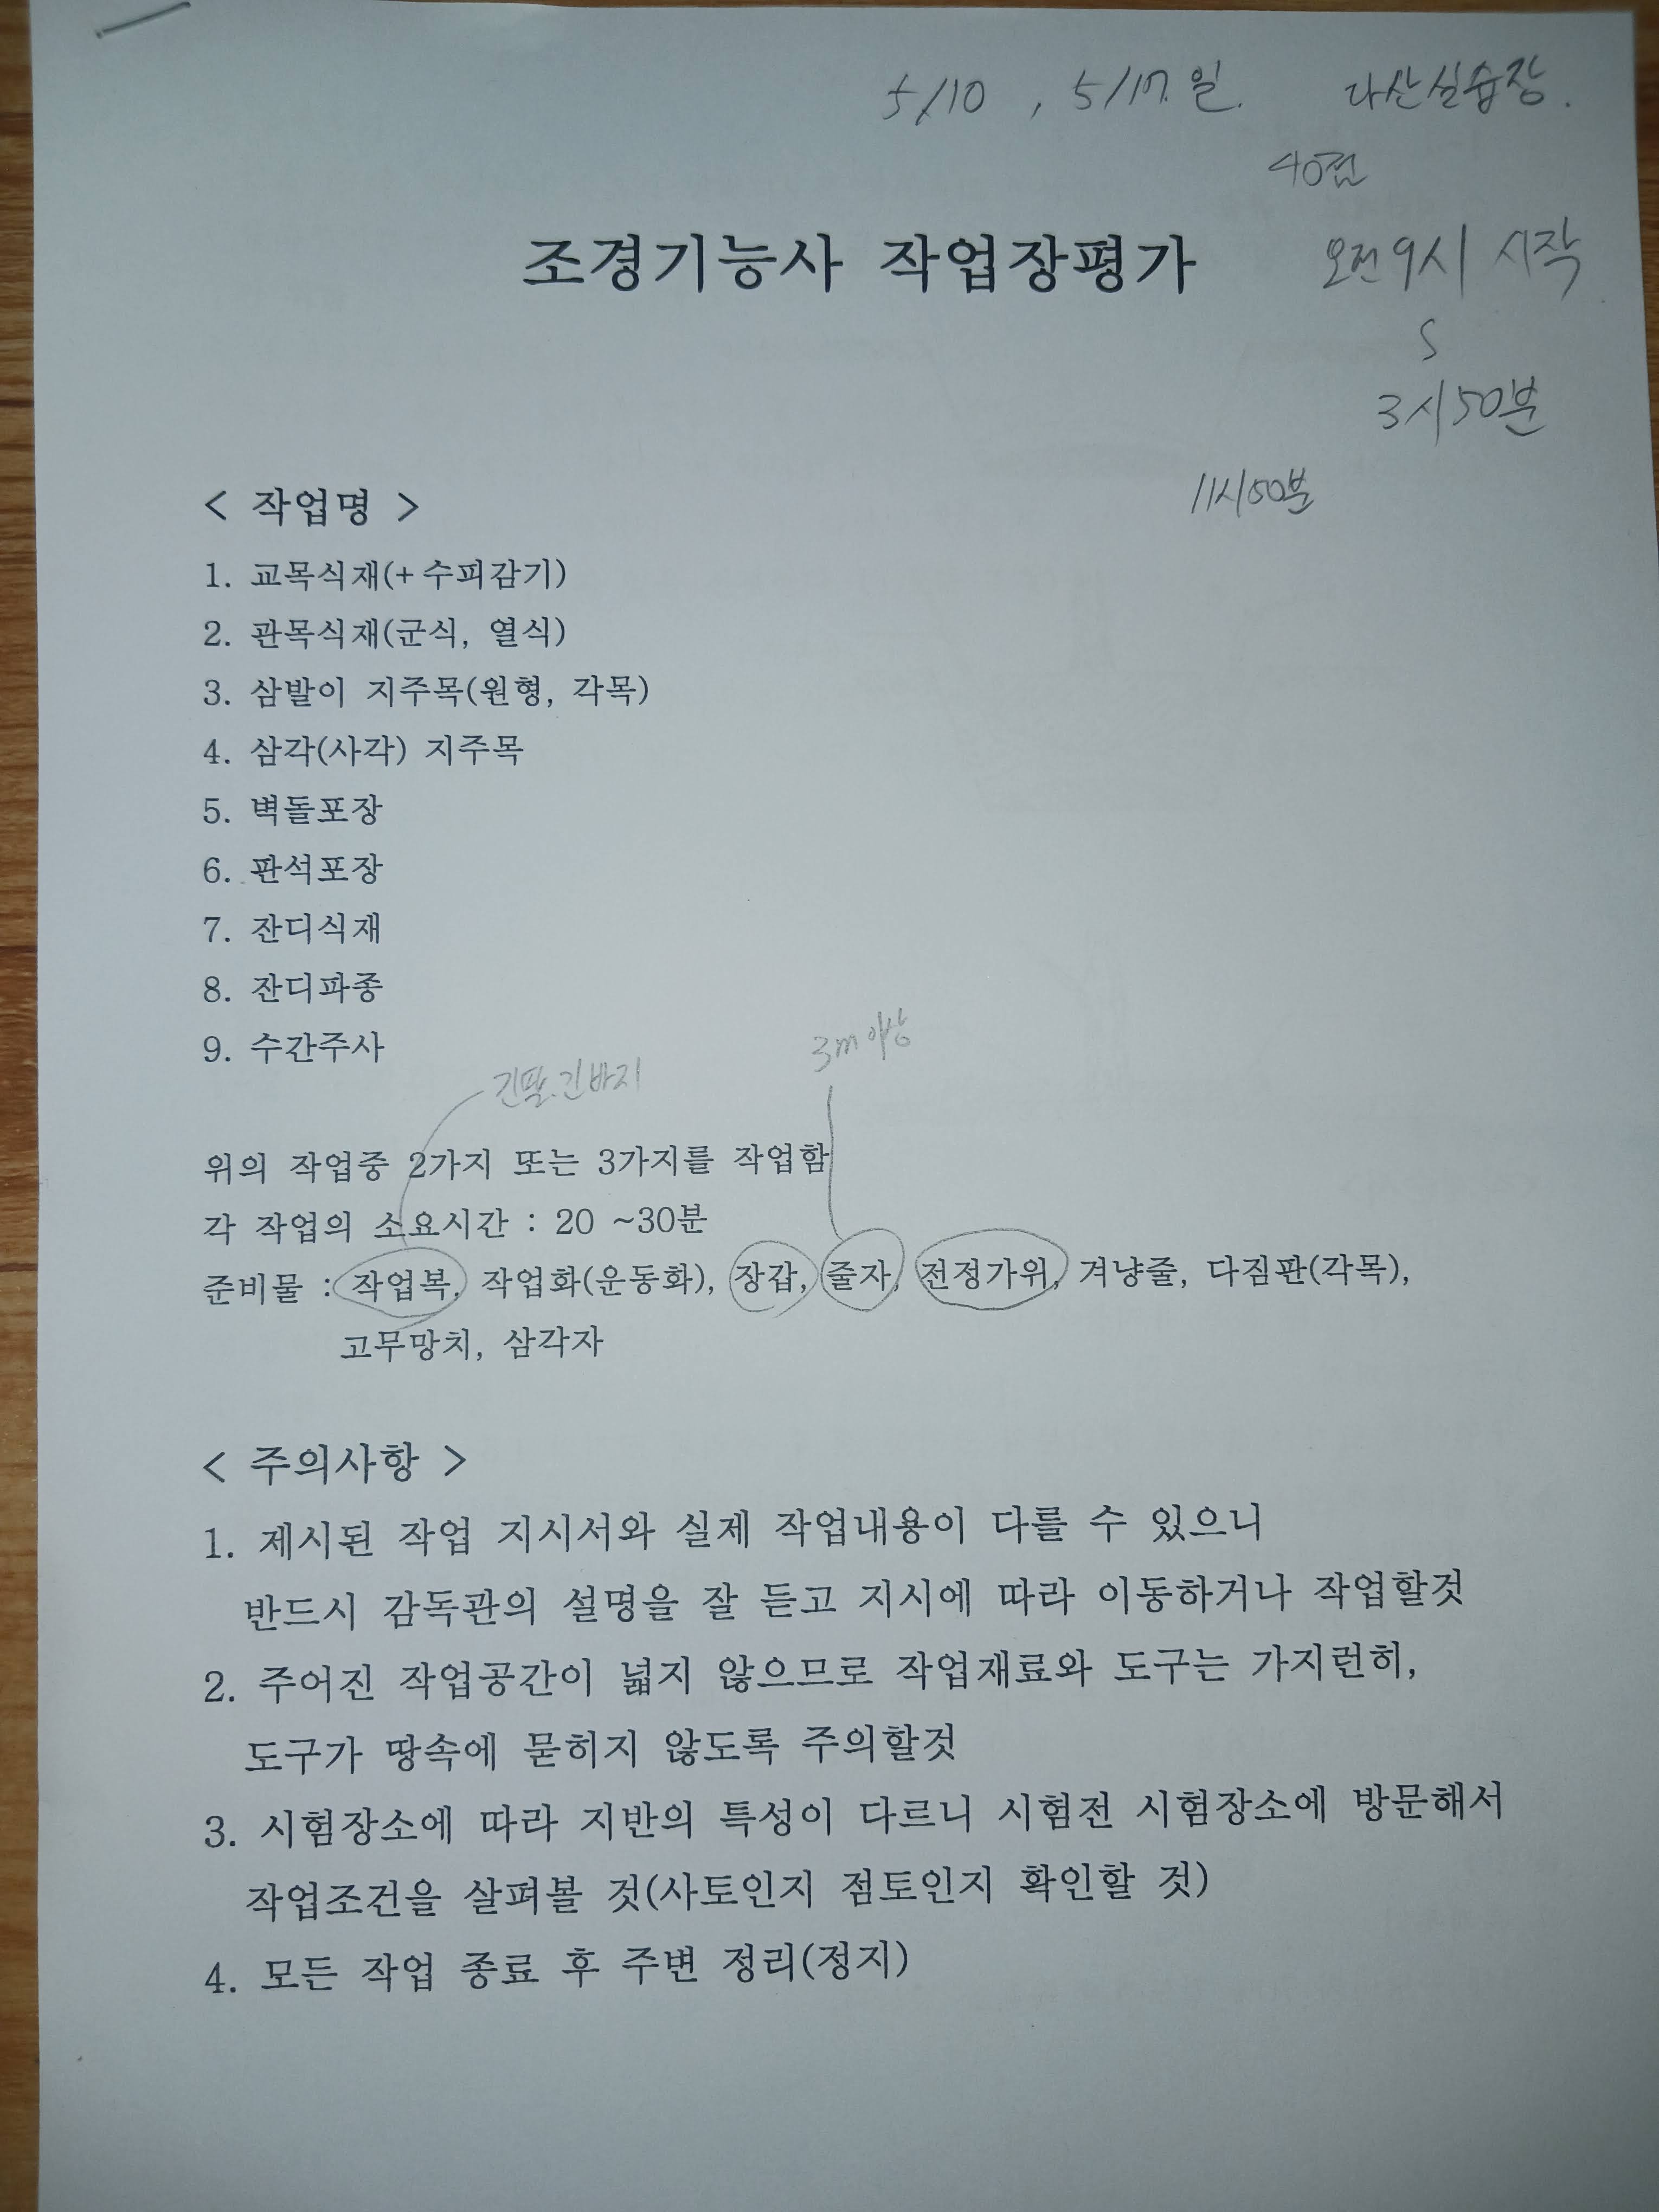 5/10 , 5/17. 일. 다산실습장.
40점
조경기능사 작업장평가
오전 9시 시작
S
3시50분
11시50분
< 작업명 >
1. 교목식재(+수피감기)
2. 관목식재(군식, 열식)
3. 삼발이 지주목(원형, 각목)
4. 삼각(사각) 지주목
5. 벽돌포장
6. 판석포장
7. 잔디식재
8. 잔디파종
9. 수간주사
3m 이상
긴팔.긴바지
위의 작업중 2가지 또는 3가지를 작업함
각 작업의 소요시간 : 20 ~30분
준비물 : 작업복, 작업화(운동화), 장갑, 줄자, 전정가위, 겨냥줄, 다짐판(각목),
고무망치, 삼각자
< 주의사항 >
1. 제시된 작업 지시서와 실제 작업내용이 다를 수 있으니
반드시 감독관의 설명을 잘 듣고 지시에 따라 이동하거나 작업할것
2. 주어진 작업공간이 넓지 않으므로 작업재료와 도구는 가지런히,
도구가 땅속에 묻히지 않도록 주의할것
3. 시험장소에 따라 지반의 특성이 다르니 시험전 시험장소에 방문해서
작업조건을 살펴볼 것(사토인지 점토인지 확인할 것)
4. 모든 작업 종료 후 주변 정리(정지)